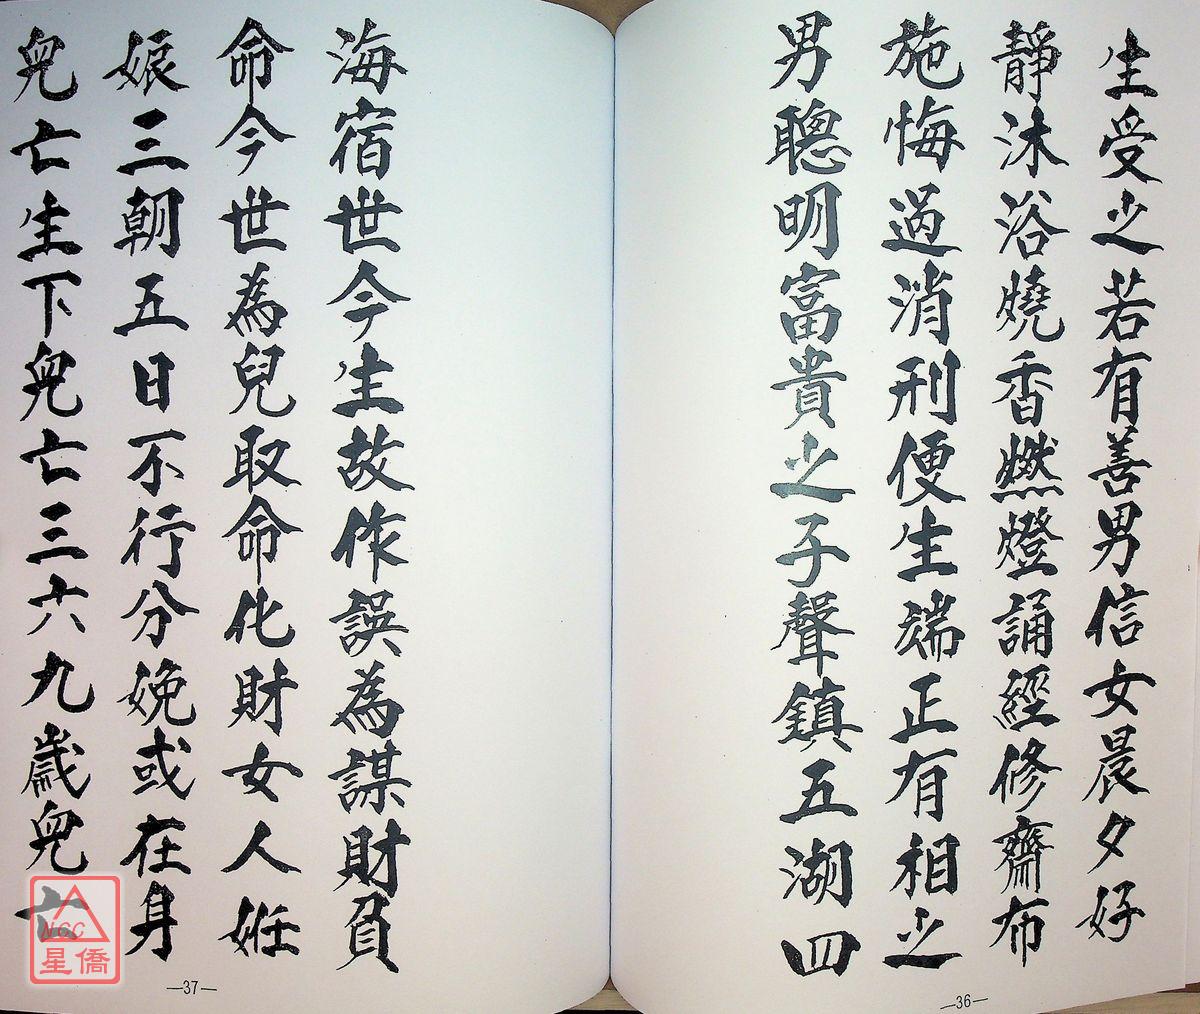 生受之若有善男信女晨夕好
靜沐浴燒香燃燈誦經修齋布
施悔過消刑便生端正有相之
男聰明富貴之子聲鎮五湖四
—36—
海宿世今生故作誤為謀財負
命今世為兒取命化財女人姙
娘三朝五日不行分娩或在身
兒亡生下兒亡三六九歲兒亡
—37—
NCC
星僑